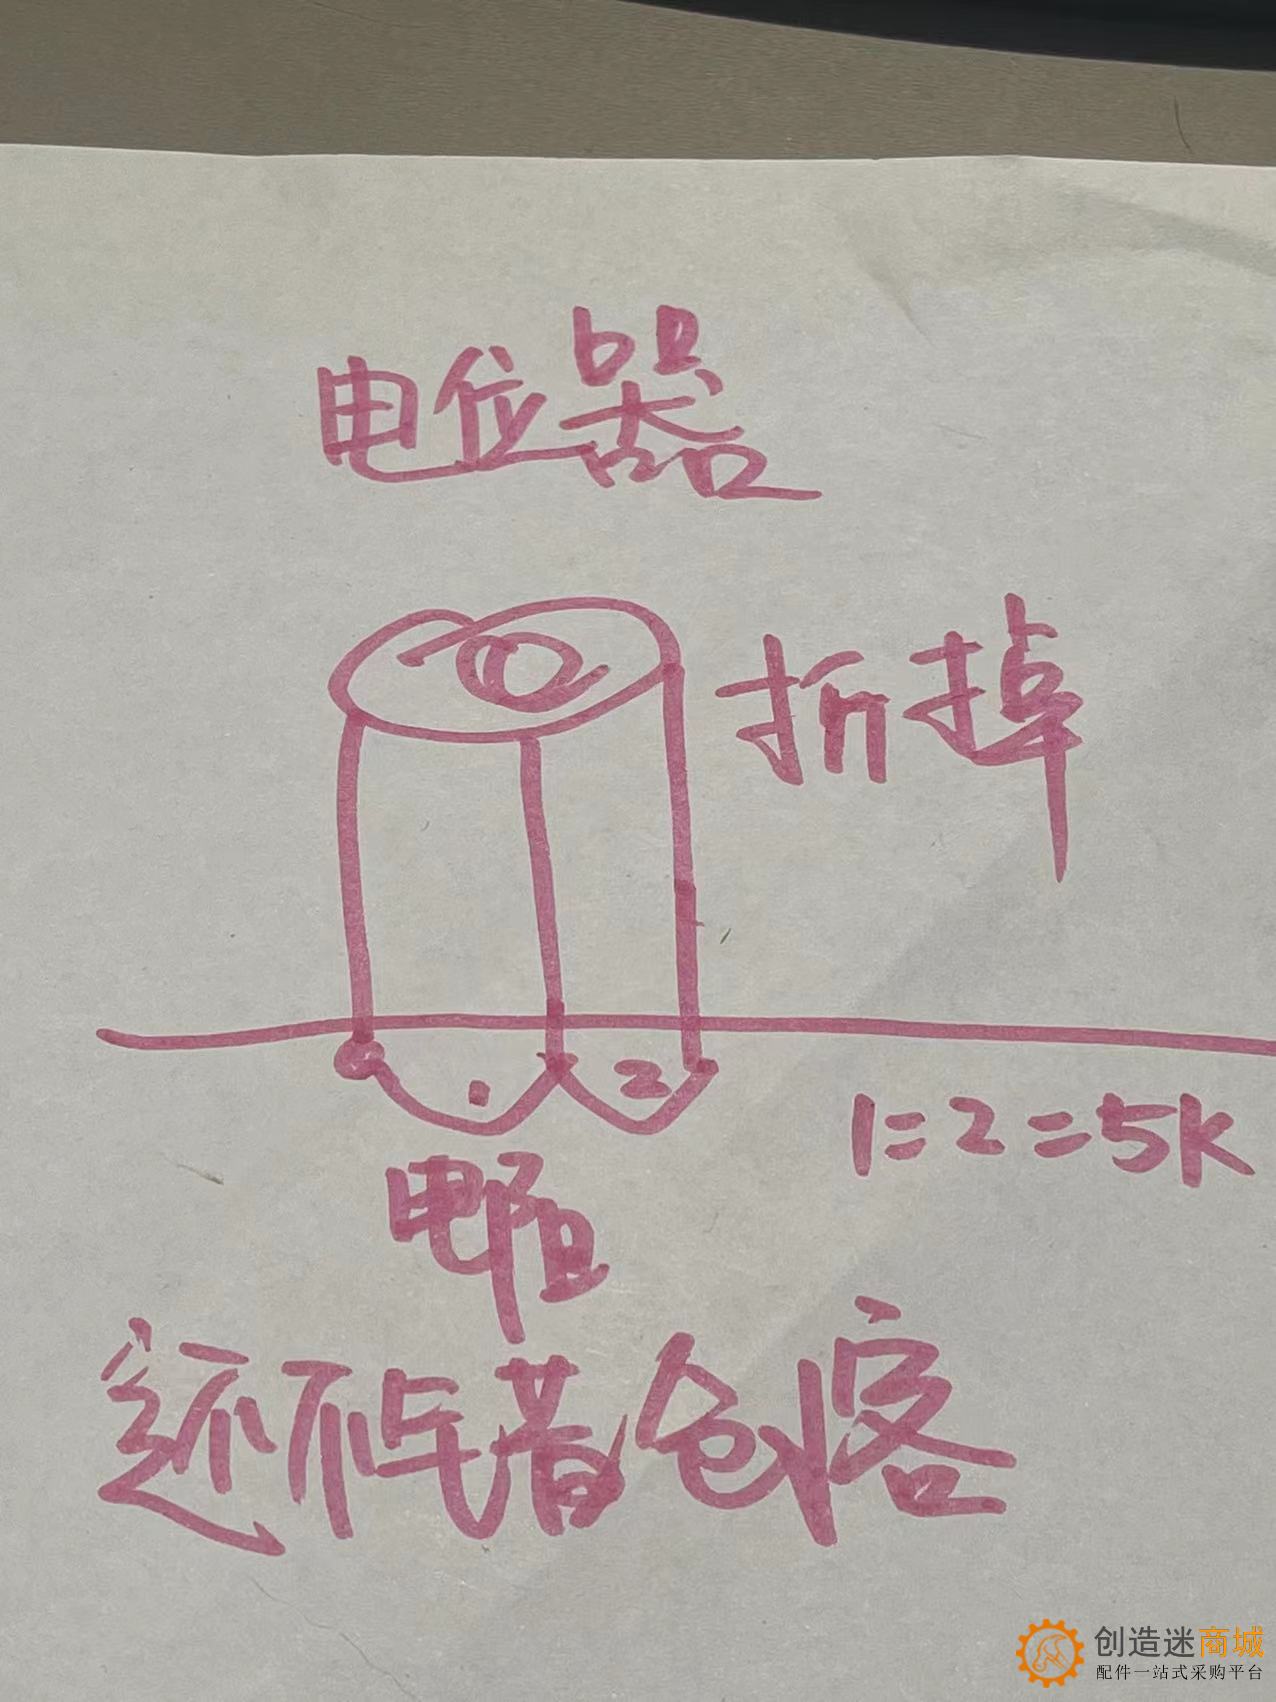 电位器
折掉
1 2
1=2=5K
电阻
还不与昔创客
创造迷商城
配件一站式采购平台